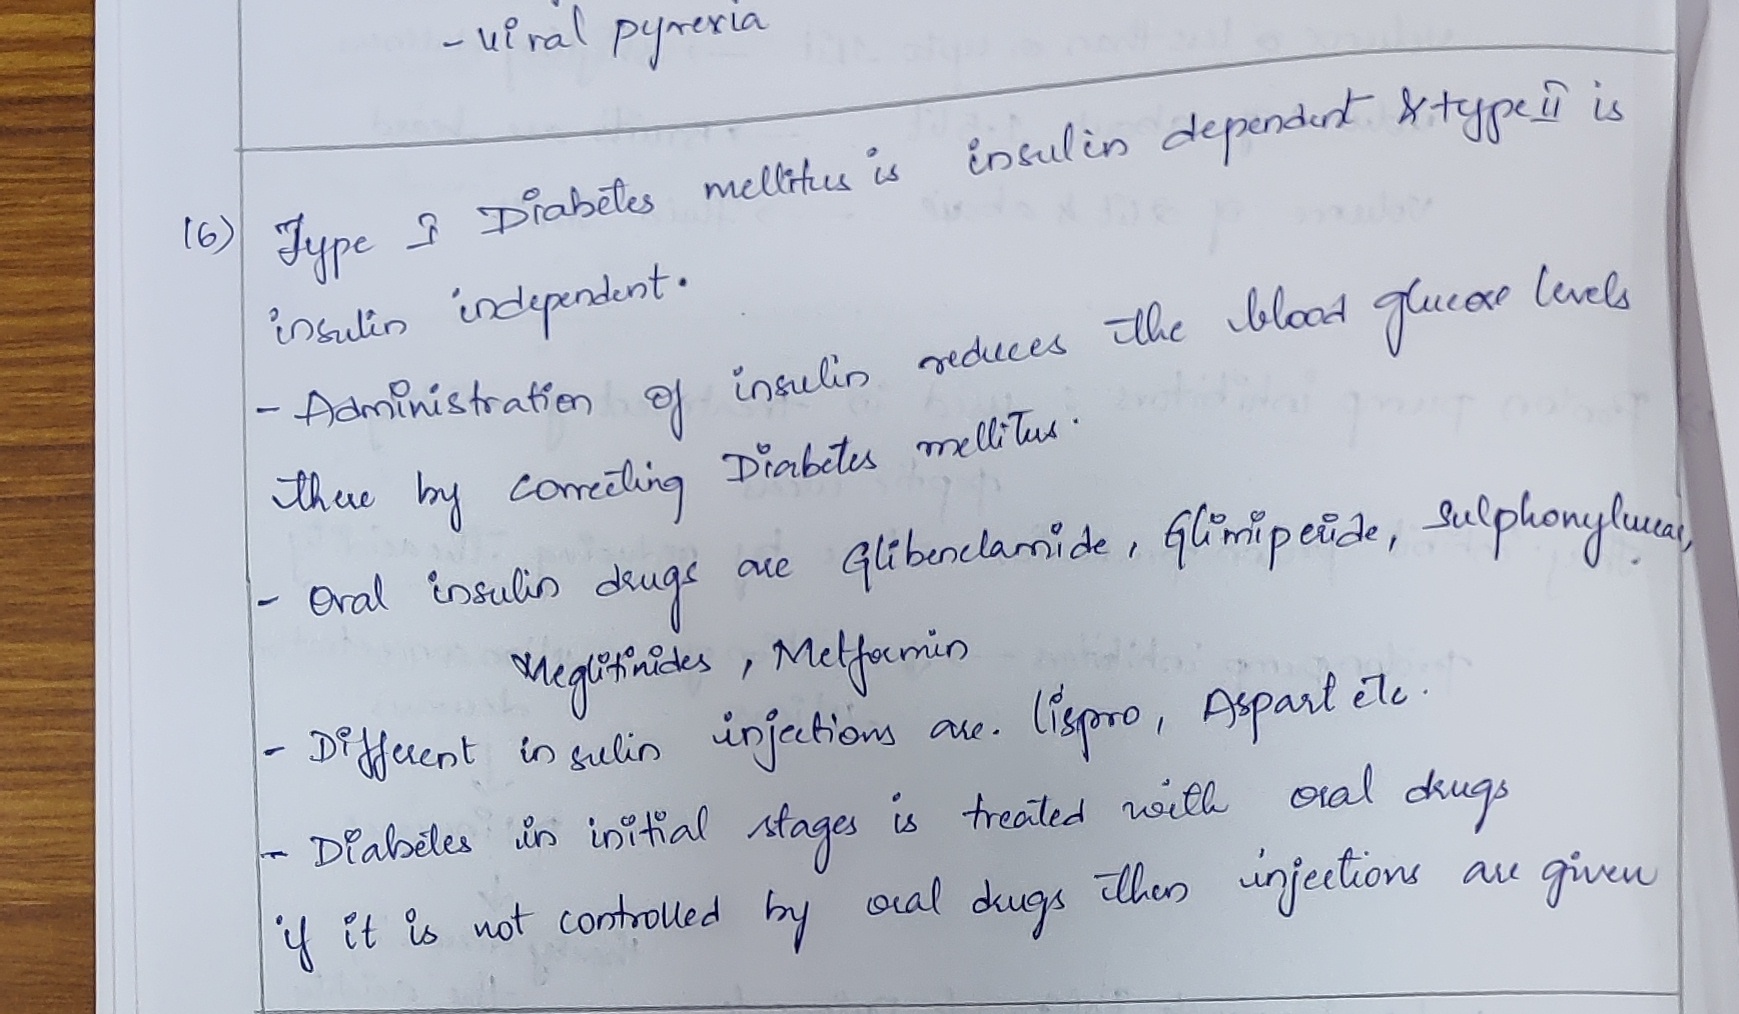 - viral pyrexia
16) Type I Diabetes mellitus is insulin dependent & type ii is
insulin independent.
- Administration of insulin reduces the blood glucose levels
there by correcting Diabetes mellitus.
- Oral insulin drugs are Glibenclamide, Glimiperide, Sulphonylureas,
Meglitinides, Metformin
- Different insulin injections are. lispro, Aspart etc.
- Diabetes in initial stages is treated with oral drugs
if it is not controlled by oral drugs then injections are given